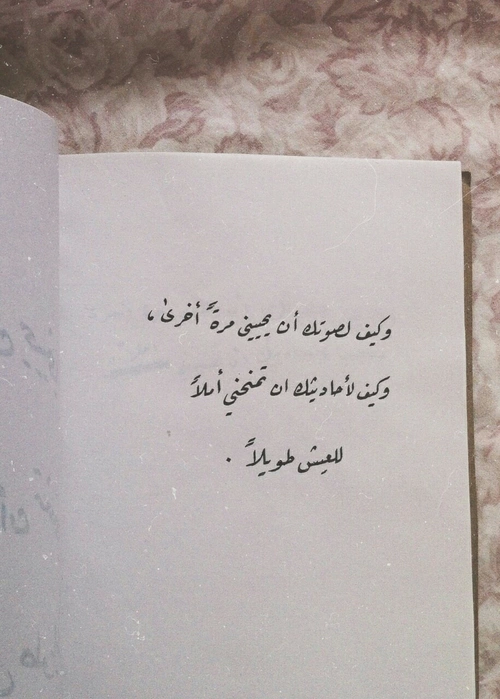 وكيف لصوتك أن يحييني مرةً أخرىٰ،
وكيف لأحاديثك ان تمنحني أملاً
للعيش طويلاً .